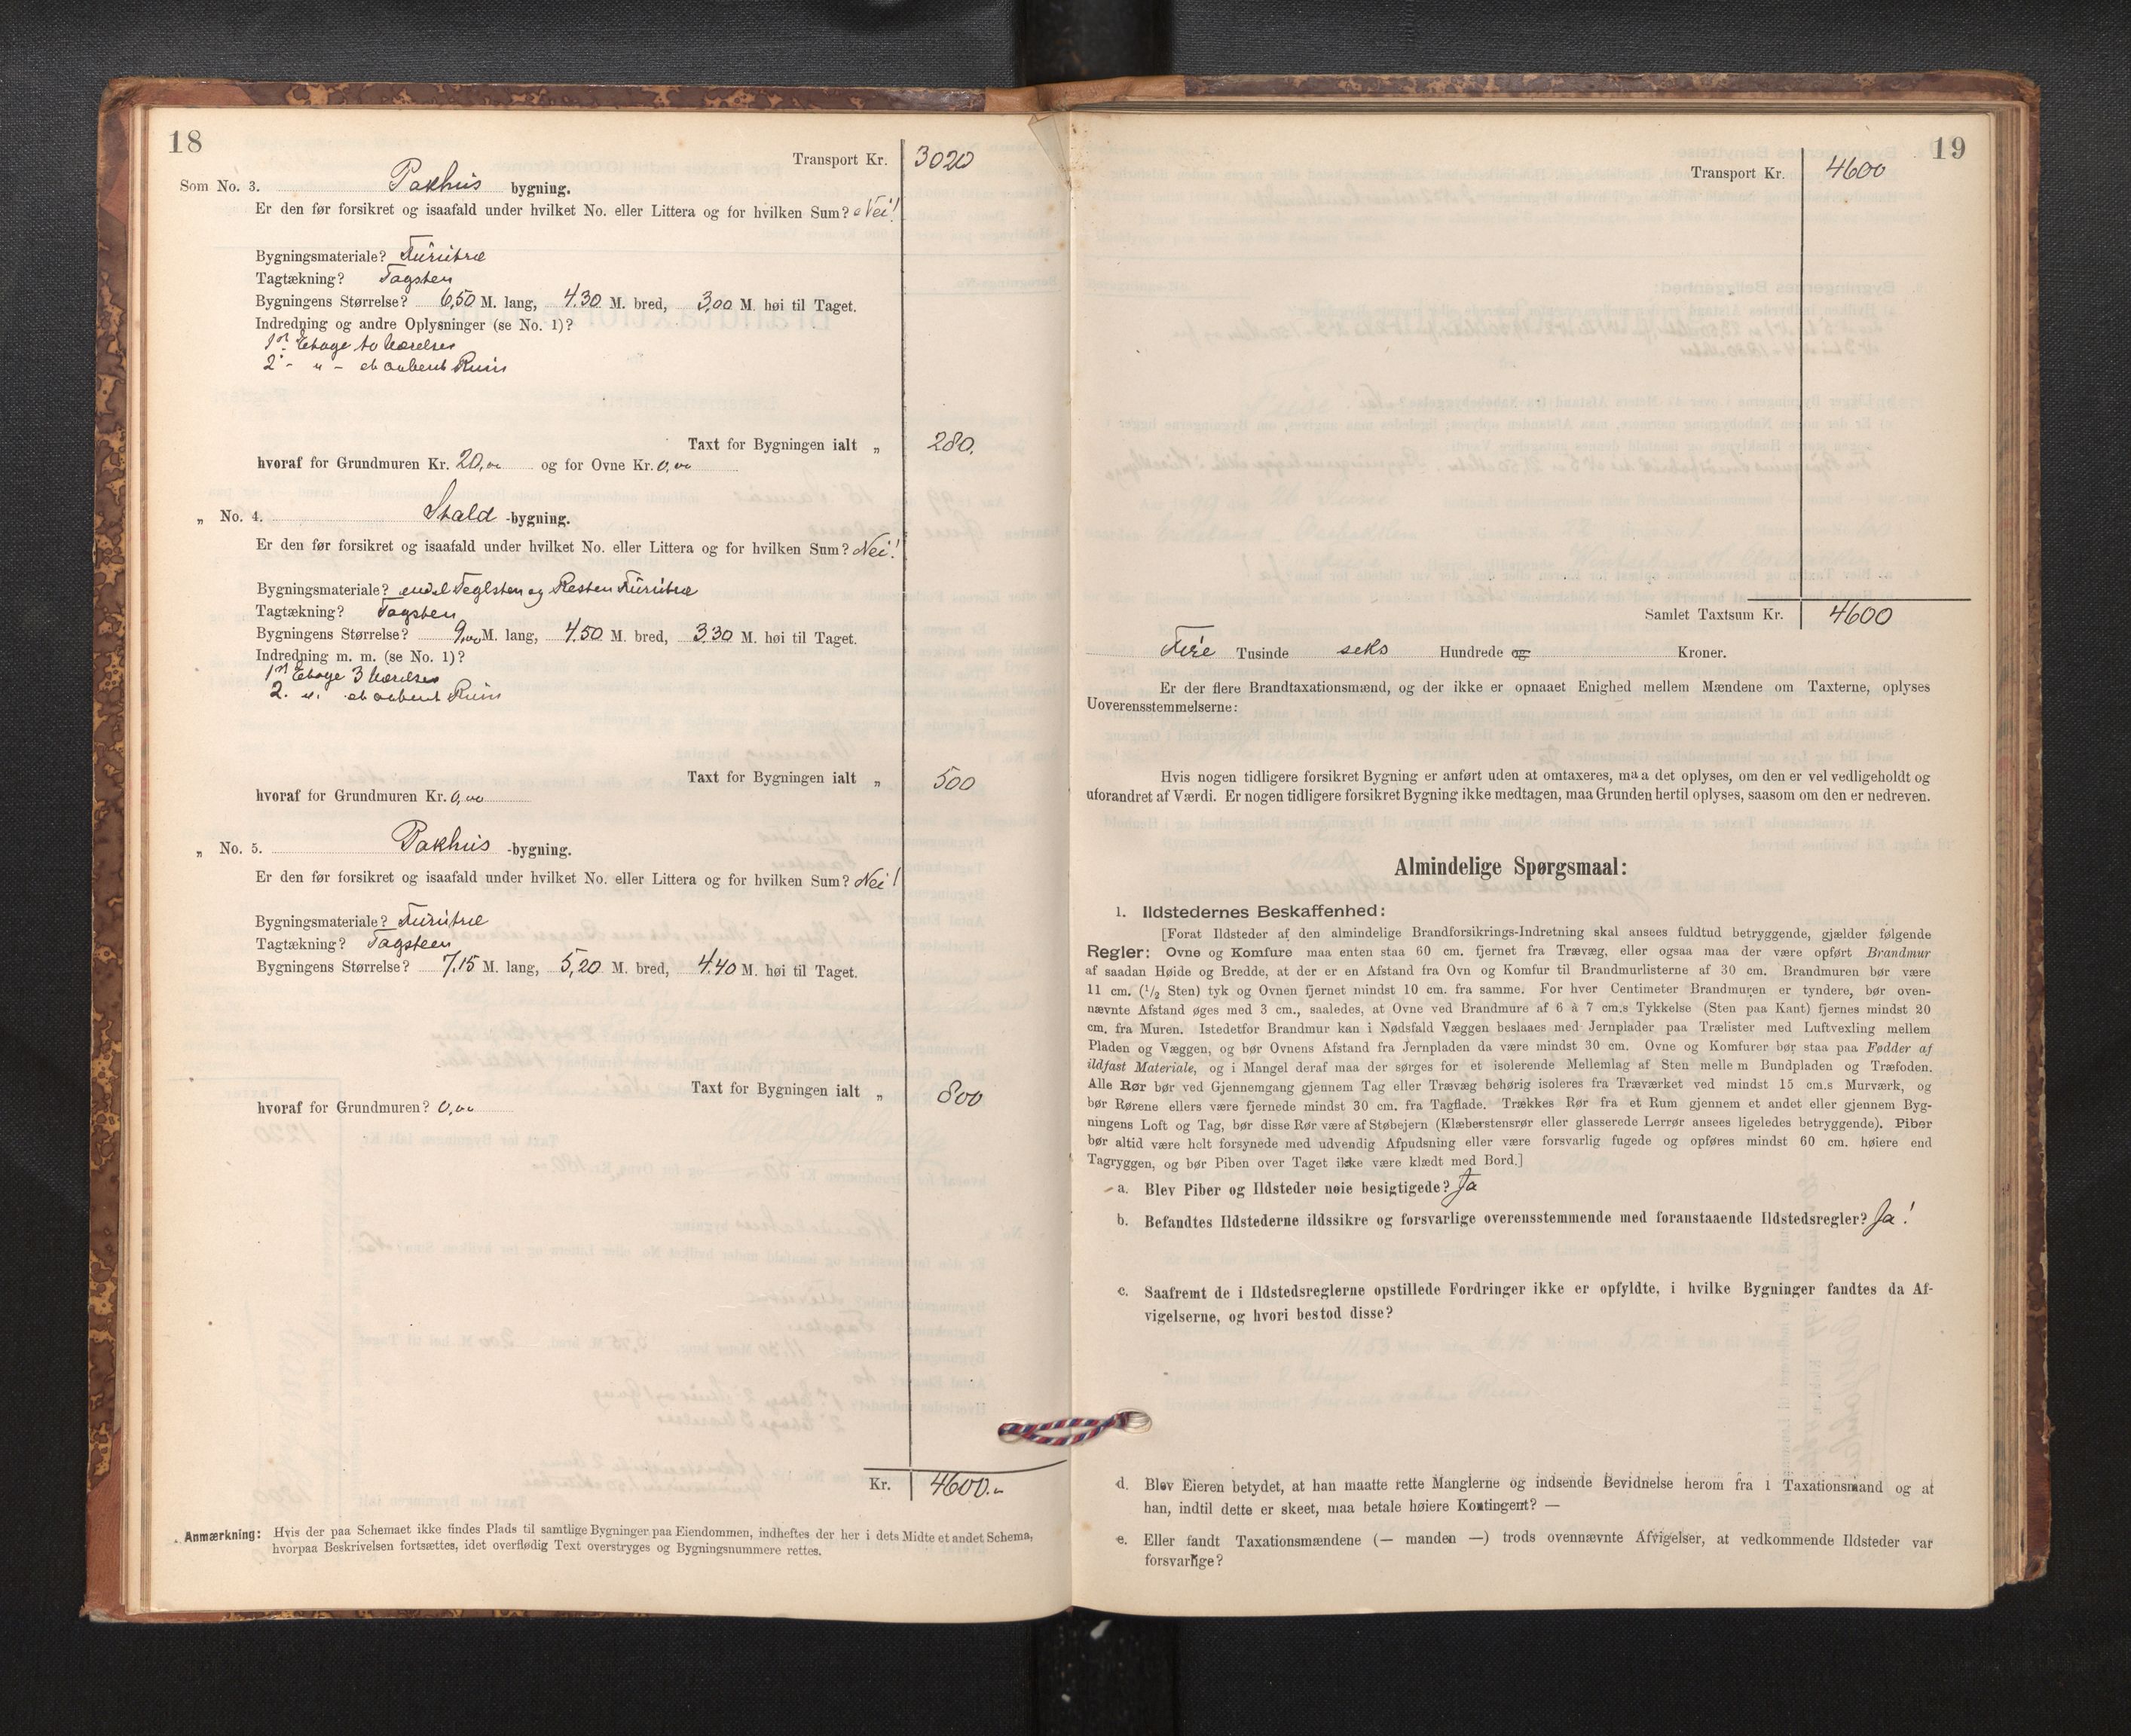 18
Transport Kr. 3020
Som No. 3. Pakhus bygning.
Er den før forsikret og isaafald under hvilket No. eller Littera og for hvilken Sum? Nei!
Bygningsmateriale? Furutræ
Tagtækning? Tagsten
Bygningens Størrelse? 6,50 M. lang, 4.30 M. bred, 3,00 M. høi til Taget.
Indredning og andre Oplysninger (se No. 1)?
1ste Etage to Værelser
2. - " - et aabent Rum
Taxt for Bygningen ialt „ 280.
hvoraf for Grundmuren Kr. 20,00 og for Ovne Kr. 0,00
„ No. 4. Stald -bygning.
Er den før forsikret og isaafald under hvilket No. eller Littera og for hvilken Sum? Nei!
Bygningsmateriale? endel Teglsten og Resten Furutræ
Tagtækning? Tagsten
Bygningens Størrelse? 9,00 M. lang, 4.50 M. bred, 3.30 M. høi til Taget.
Indredning m. m. (se No. 1)?
1ste Etage 3 Værelser
2. ". et aabent Rum
Taxt for Bygningen ialt „ 500
hvoraf for Grundmuren Kr. 0,00
„ No. 5. Pakhus -bygning.
Er den før forsikret og isaafald under hvilket No. eller Littera og for hvilken Sum? Nei!
Bygningsmateriale? Furutræ
Tagtækning? Tagsteen
Bygningens Størrelse? 7.15 M. lang, 5,20 M. bred, 4.40 M. høi til Taget.
Taxt for Bygningen ialt „ 800
hvoraf for Grundmuren? 0,00
Kr. 4600.-
Anmærkning: Hvis der paa Schemaet ikke findes Plads til samtlige Bygninger paa Eiendommen, indheftes der her i dets Midte et andet Schema,
hvorpaa Beskrivelsen fortsættes, idet overflødig Text overstryges og Bygningsnummere rettes.
19
Transport Kr. 4600
Samlet Taxtsum Kr. 4600
Fire Tusinde seks Hundrede og Kroner.
Er der flere Brandtaxationsmænd, og der ikke er opnaaet Enighed mellem Mændene om Taxterne, oplyses
Uoverensstemmelserne:
Hvis nogen tidligere forsikret Bygning er anført uden at omtaxeres, maa det oplyses, om den er vel vedligeholdt og
uforandret af Værdi. Er nogen tidligere forsikret Bygning ikke medtagen, maa Grunden hertil oplyses, saasom om den er nedreven.
Almindelige Spørgsmaal:
1. Ildstedernes Beskaffenhed:
[Forat Ildsteder af den almindelige Brandforsikrings-Indretning skal ansees fuldtud betryggende, gjælder følgende
Regler: Ovne og Komfure maa enten staa 60 cm. fjernet fra Trævæg, eller ogsaa maa der være opført Brandmur
af saadan Høide og Bredde, at der er en Afstand fra Ovn og Komfur til Brandmurlisterne af 30 cm. Brandmuren bør være
11 cm. (1/2 Sten) tyk og Ovnen fjernet mindst 10 cm. fra samme. For hver Centimeter Brandmuren er tyndere, bør oven-
nævnte Afstand øges med 3 cm., saaledes, at Ovne ved Brandmure af 6 à 7 cm.s Tykkelse (Sten paa Kant) fjernes mindst 20
cm. fra Muren. Istedetfor Brandmur kan i Nødsfald Væggen beslaaes med Jernplader paa Trælister med Luftvexling mellem
Pladen og Væggen, og bør Ovnens Afstand fra Jernpladen da være mindst 30 cm. Ovne og Komfurer bør staa paa Fødder af
ildfast Materiale, og i Mangel deraf maa der sørges for et isolerende Mellemlag af Sten mellem Bundpladen og Træfoden.
Alle Rør bør ved Gjennemgang gjennem Tag eller Trævæg behørig isoleres fra Træværket ved mindst 15 cm.s Murværk, og
bør Rørene ellers være fjernede mindst 30 cm. fra Tagflade. Trækkes Rør fra et Rum gjennem et andet eller gjennem Byg-
ningens Loft og Tag, bør disse Rør være af Støbejern (Klæberstensrør eller glasserede Lerrør ansees ligeledes betryggende). Piber
bør altid være helt forsynede med udvendig Afpudsning eller være forsvarlig fugede og opføres mindst 60 cm. høiere end
Tagryggen, og bør Piben over Taget ikke være klædt med Bord.]
a. Blev Piber og Ildsteder nøie besigtigede? Ja
b. Befandtes Ildstederne ildssikre og forsvarlige overensstemmende med foranstaaende Ildstedsregler? Ja!
c. Saafremt de i Ildstedsreglerne opstillede Fordringer ikke er opfyldte, i hvilke Bygninger fandtes da Af-
vigelserne, og hvori bestod disse?
d. Blev Eieren betydet, at han maatte rette Manglerne og indsende Bevidnelse herom fra 1 Taxationsmand og at
han, indtil dette er skeet, maa betale høiere Kontingent? —
e. Eller fandt Taxationsmændene (— manden —) trods ovennævnte Afvigelser, at vedkommende Ildsteder var
forsvarlige?